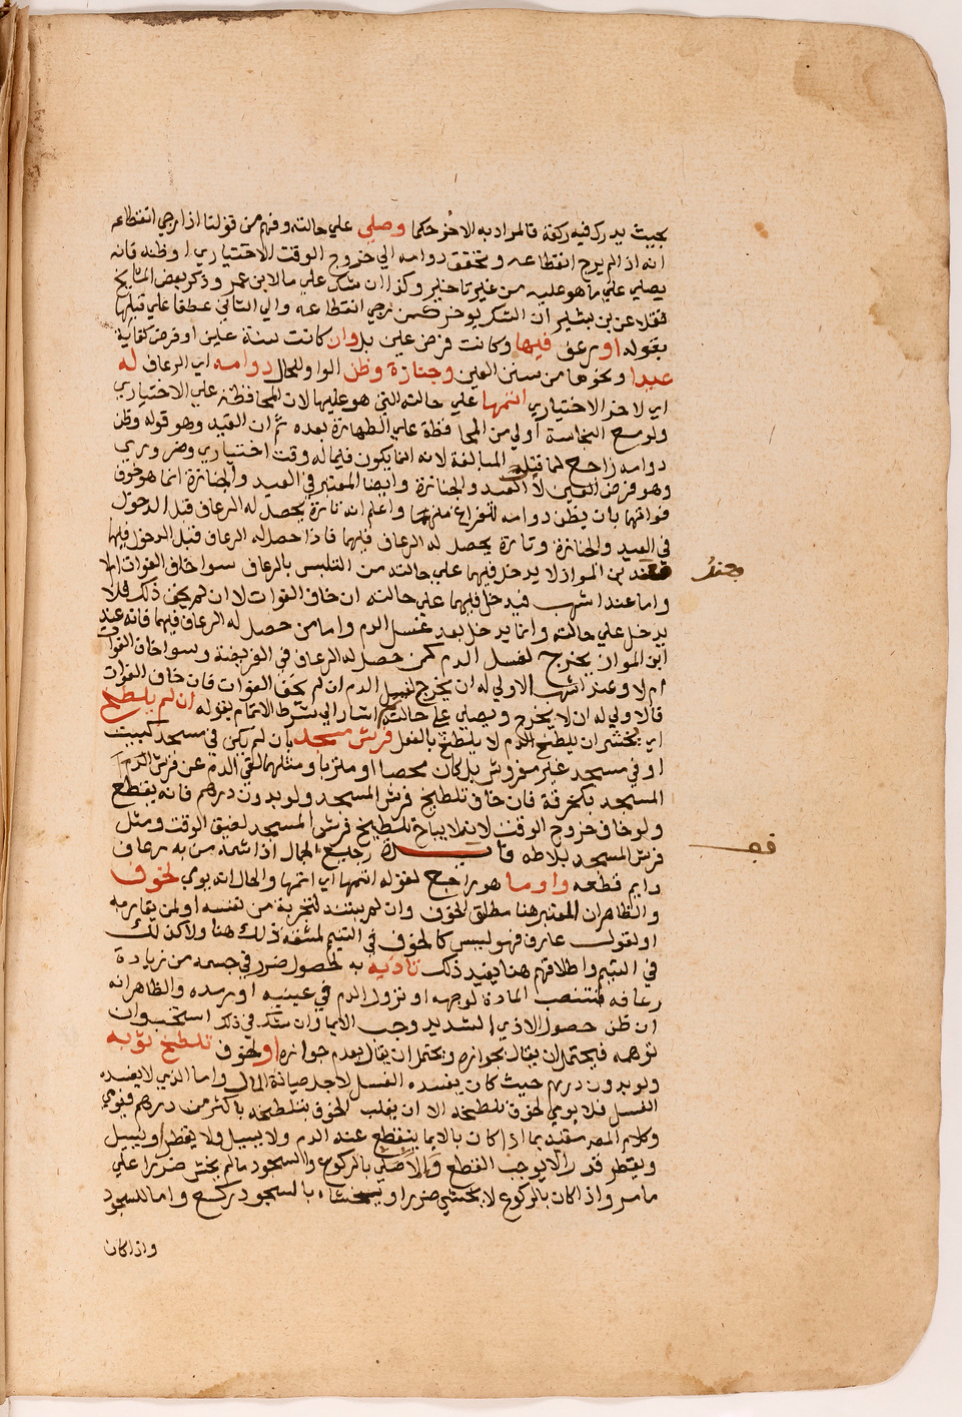 بحيث يدرك فيه ركعة فالمراد به الاخر حكما وصلي علي حالته وفهم من قولنا اذا رجي انقطاعه
انه اذا لم يرج انقطاعه وتحقق دوامه الي خروج الوقت الاختياري او ظنه فانه
يصلي علي ما هو عليه من غير تاخير وكذا ان شك علي ما لابن عمر وذكر بعض المشايخ
نقلا عن بن بشير ان الشك يوخر كمن رجي انقطاعه والي الثاني عطفا علي قبلها
بقوله او رعف فيها وكانت فرض عين بل وان كانت سنة عين او فرض كفاية
عيدا ونحوها من سنن العين وجنازة وظن الواو للحال دوامه اي الرعاف له
اي لاخر الاختياري اتمها علي حالته التي هو عليها لان المحافظة علي الاختياري
ولو مع النجاسة اولي من المحافظة علي الطهارة بعده ثم ان القيد وهو قوله وظن
دوامه راجع لما قبله المبالغة لانه انما يكون فيما له وقت اختياري وضروري
وهو فرض العين لا العيد والجنازة وايضا المعتبر في العيد والجنازة انما هو خوف
فواتهما بان يظن دوامه للفراغ منهما واعلم انه تارة يحصل له الرعاف قبل الدخول
في العيد والجنازة وتارة يحصل له الرعاف فيهما فاذا حصل له الرعاف قبل الدخول فيهما
فعند بن المواز لا يدخل فيهما علي حالته من التلبس بالرعاف سوا خاف الفوات ام لا
فعند
واما عند اشهب فيدخل فيهما علي حالته ان خاف الفوات لا ان لم يخف ذلك فلا
يدخل علي حالته وانما يدخل بعد غسل الدم واما من حصل له الرعاف فيهما فانه عند
ابن المواز يخرج لغسل الدم كمن حصل له الرعاف في الفريضة وسوا خاف الفوات
ام لا وعند اشهب الاولي له ان يخرج لغسل الدم ان لم يخف الفوات فان خاف الفوات
فالاولي له ان لا يخرج ويصلي علي حالته ثم اشار الي شرط الاتمام بقوله ان لم يلطخ
اي يخش ان يلطخ الدم لا يلطخ بالفعل فرش مسجد بان لم يكن في مسجد كبيت
او في مسجد غير مفروش بل كان محصبا او متربا ومثلهما لقي الدم عن فرش الدم
المسجد بكخرقة فان خاف تلطيخ فرش المسجد ولو بدون درهم فانه يقطع
ولو خاف خروج الوقت لانه لا يباح تلطيخ فرش المسجد لضيق الوقت ومثل
فرش المسجد بلاطه رجيع الجمال اذا شمه من به رعاف
قف
دايم قطعه واوما هو راجع لقوله اتمها اي اتمها والحال انه يومي لخوف
والظاهر ان المعتبر هنا مطلق الخوف وان لم يستند لتجربة من نفسه او لمن يقاربه
او لقول عارف فهو ليس كالخوف في التيمم لمشقة ذلك هنا ولا كذلك
في التيمم واطلاقهم هنا يفيد ذلك تاذيه به لحصول ضرر في جسمه من زيادة
رعافه لتنصب المادة لوجهه او نزول الدم في عينيه او رمده والظاهر انه
ان ظن حصول الاذي الشديد وجب الايما وان شك في ذلك استحب وان
توهمه فيحتمل ان يقال بجوازه ويحتمل ان يقال بعدم جوازه او لخوف تلطخ ثوبه
ولو بدون درهم حيث كان يفسده الغسل لاجل صيانة المال واما الذي لا يفسده
الغسل فلا يومي لخوف تلطخه الا ان يغلب الخوف بتلطخه باكثر من درهم فيومي
وكلام المص مقيد بما اذا كان بالايما ينقطع عنه الدم ولا يسيل ولا يقطر او يسيل
ويقطر قدرا لا يوجب القطع والا صلي بالركوع والسجود ما لم يخش ضررا علي
ما مر واذا كان بالركوع لا يخشي ضررا ويخشاه بالسجود ركع واما للسجود
واذا كان